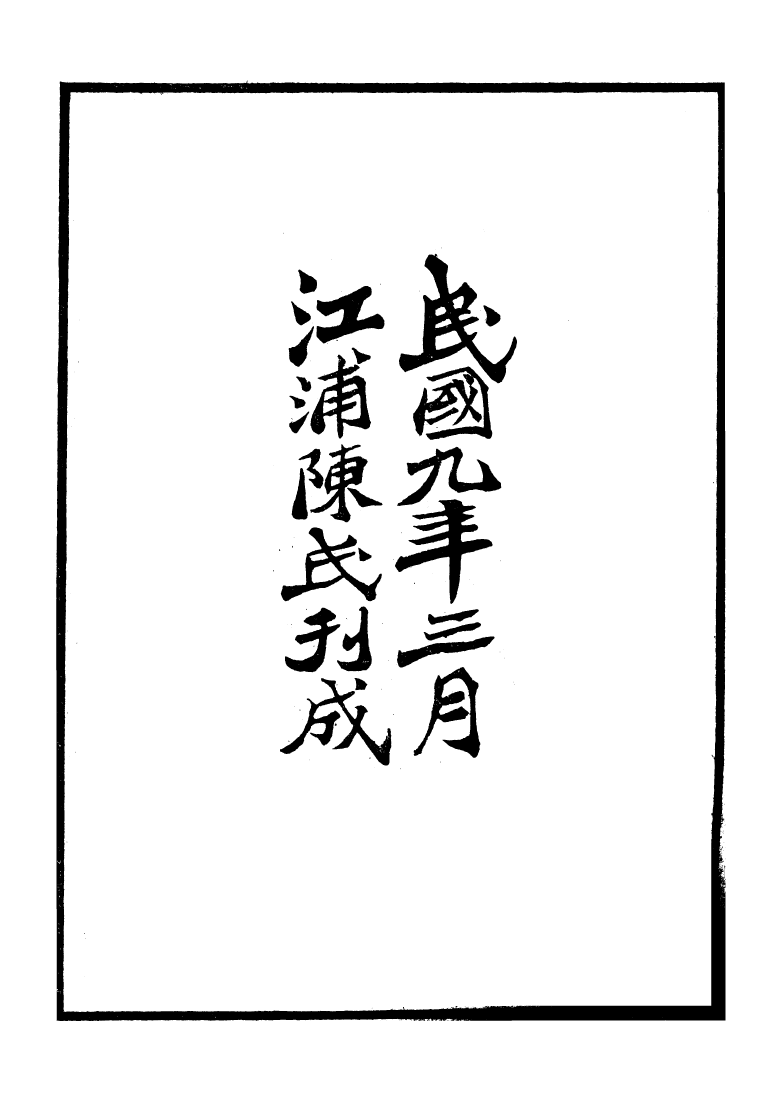 民國九年三月
江浦陳氏刊成